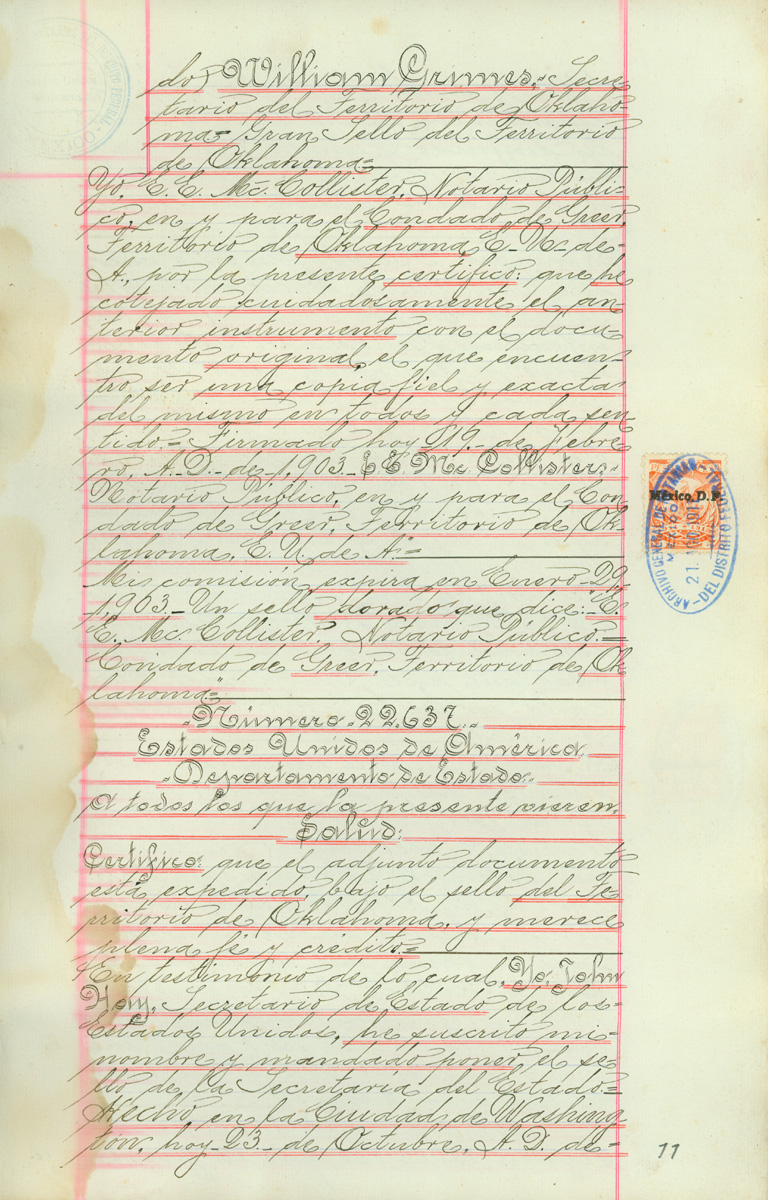 do) William Grimes,- Secre-
tario del Territorio de Oklaho-
ma= Gran Sello del Territorio
de Oklahoma=
Yo, E. E. Mc. Collister, Notario Públi-
co, en y para el Condado de Greer,
Territorio de Oklahoma, E. U. de-
A., por la presente certifico: que he
cotejado cuidadosamente el an-
terior instrumento con el docu-
mento original, el que encuen-
tro ser una copia fiel y exacta
del mismo en todos y cada sen-
tido.= Firmado hoy 19.- de Febre-
ro, A. D. de 1,903.- E. E. Mc Collister=
Notario Público, en y para el Con-
dado de Greer, Territorio de Ok-
lahoma, E. U. de A."=
Mi comisión expira en Enero 29,
1,903.- Un sello dorado que dice:-"E.
E. Mc Collister, Notario Público.=
Condado de Greer, Territorio de Ok
lahoma"=
-Número 22.637.-
Estados Unidos de América.
-Departamento de Estado.-
A todos los que la presente vieren,
Salud:
Certifico: que el adjunto documento
está expedido, bajo el sello del Te-
rritorio de Oklahoma, y merece
plena fé y crédito.=
En testimonio de lo cual, Yo, John
Hay, Secretario de Estado de los-
Estados Unidos, he suscrito mi-
nombre y mandado poner el se-
llo de la Secretaría del Estado=
Hecho en la Ciudad de Washing
tón, hoy 23- de Octubre, A. D. de-
México D. F.
ARCHIVO GENERAL DE NOTARIAS
MEXICO
21
DEL DISTRITO
11